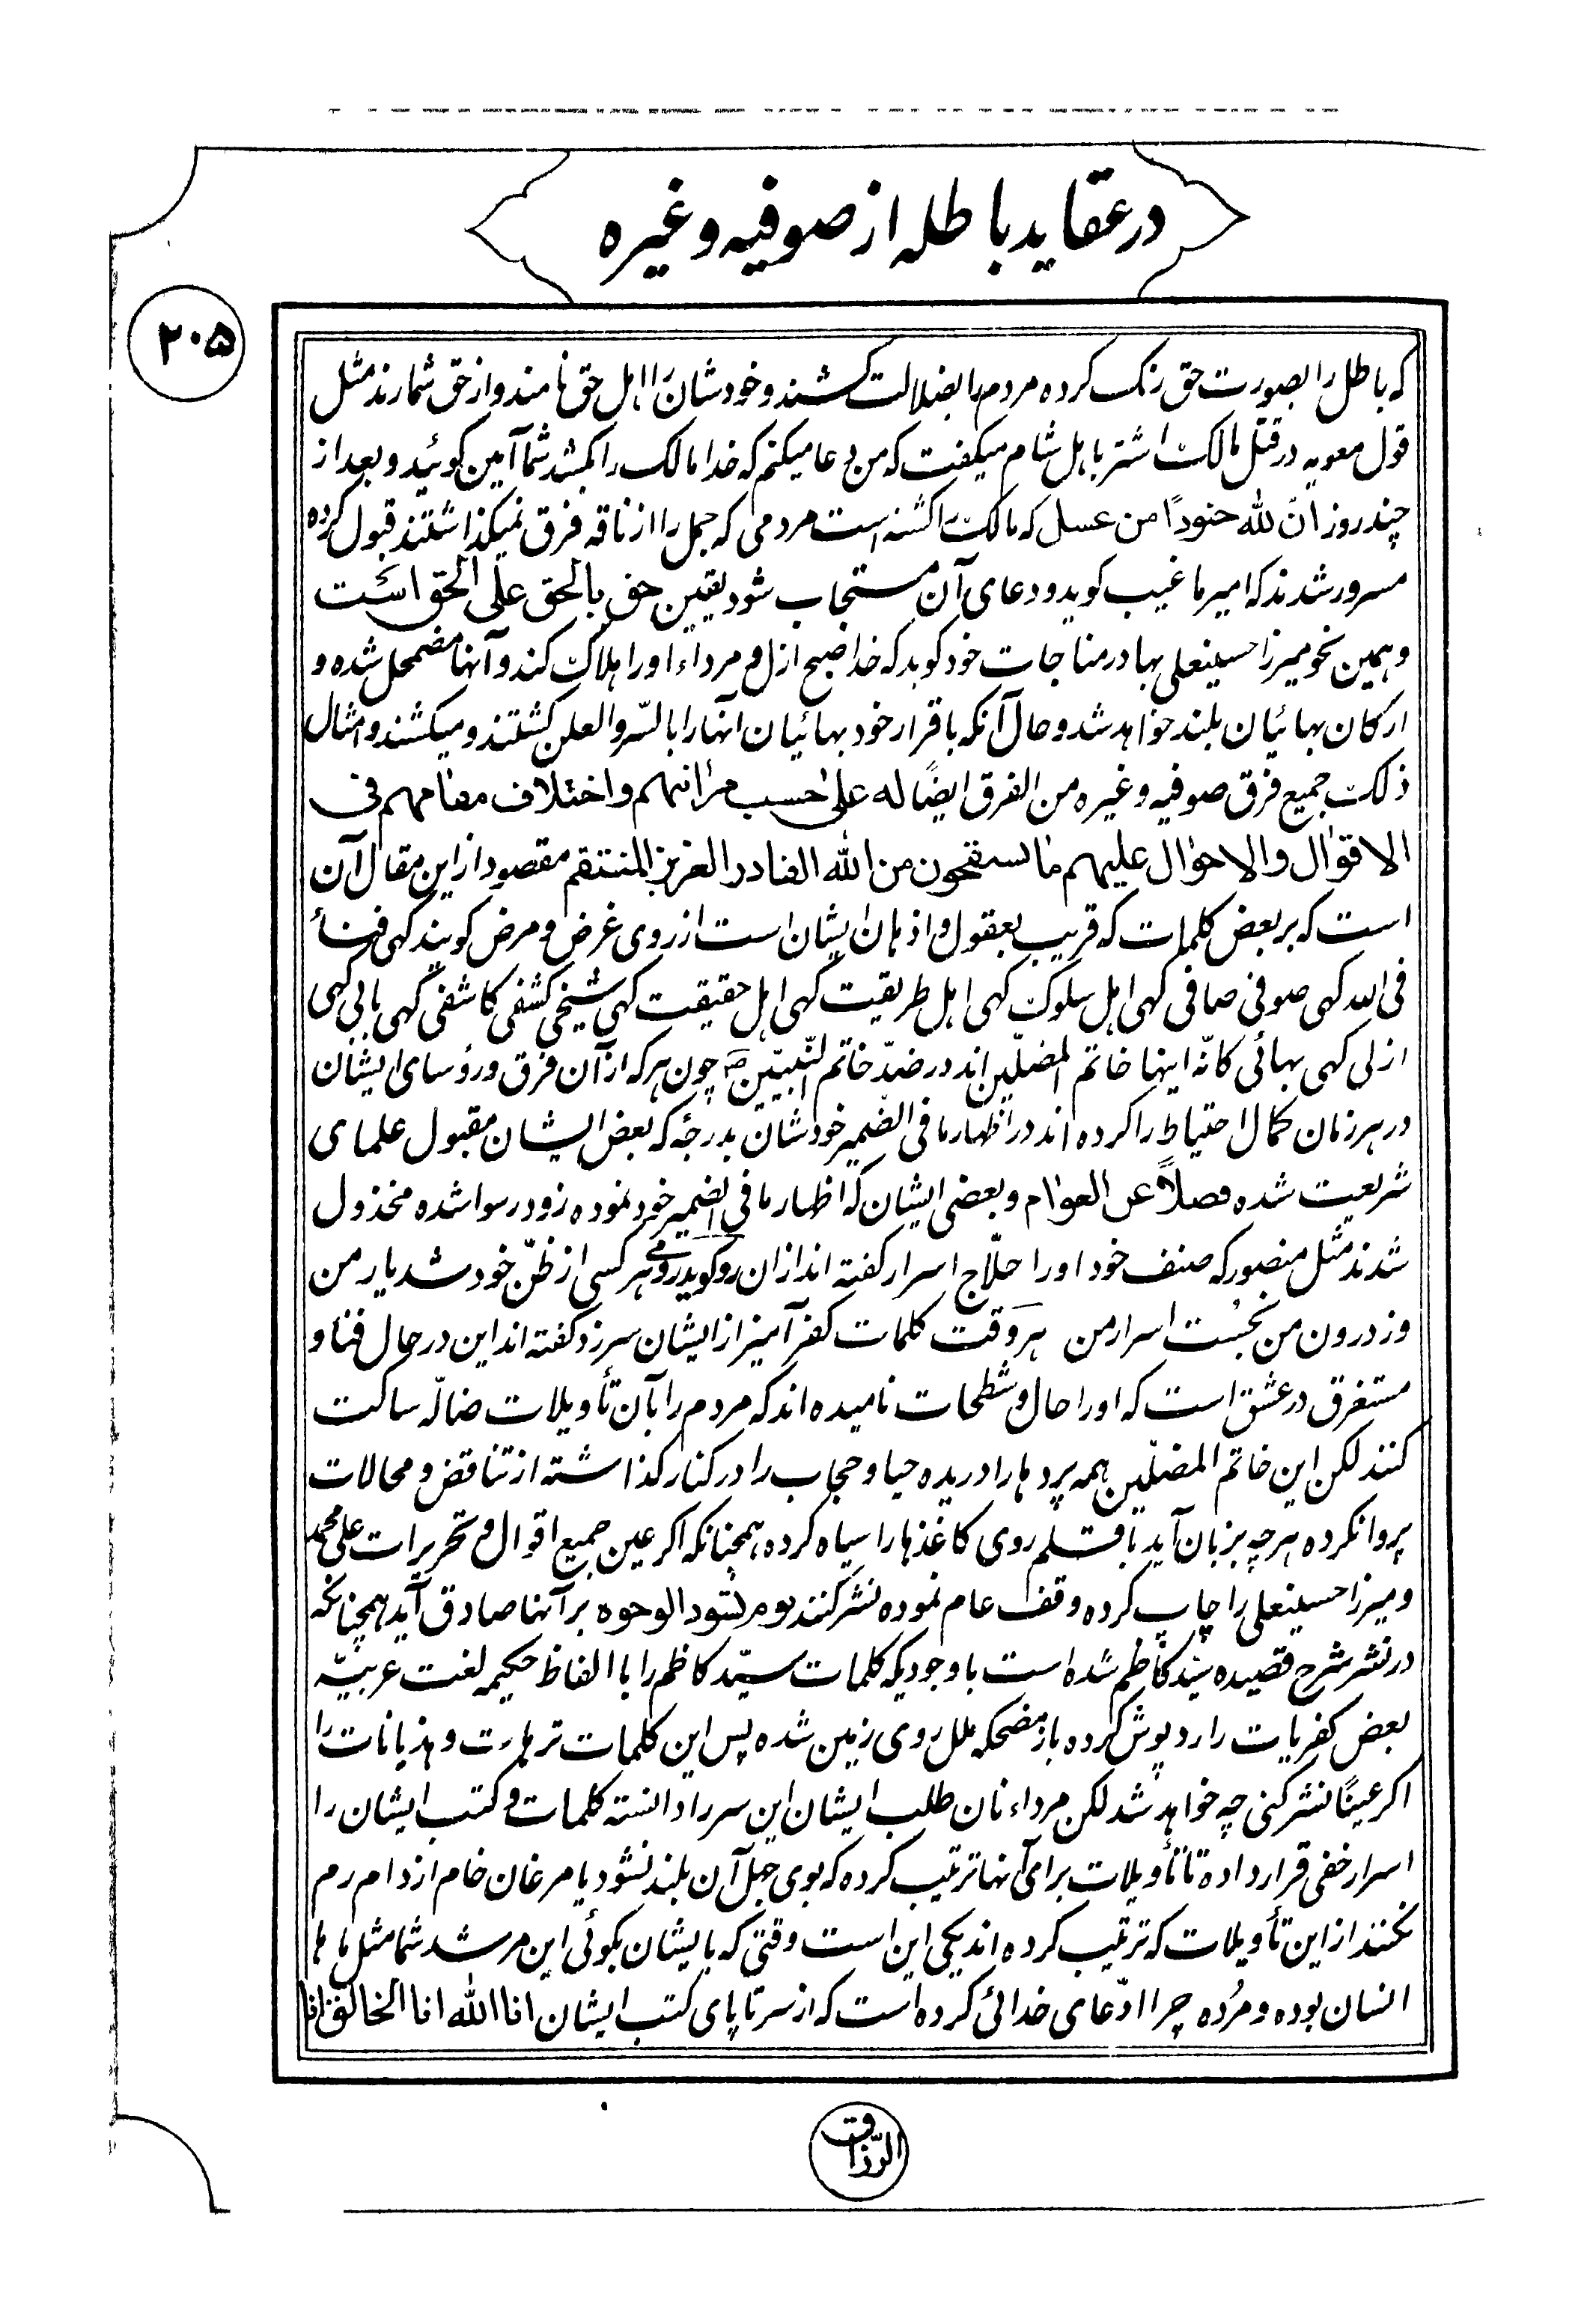 در عقاید باطله از صوفیه و غیره
۲۰۵
که باطل را بصورت حق رنک کرده مردم را بضلالت کشند و خودشان را اهل حق نامند و از حق شمارند مثل
قول معویه در قتل مالک اشتر باهل شام میکفت که من دعا میکنم که خدا مالک را بکشد شما آمین کوئید و بعد از
چند روز انّ لله جنودًا من عسل که مالک را کشته است مردمی که جمل را از ناقه فرق نمیکذاشتند قبول کرده
مسرور شدند که امیر ما غیب کوید و دعای آن مستجاب شود یقین حق بالحق علی الحق است
و همین نحو میرزا حسینعلی بها در مناجات خود کوید که خدا صبح ازل و مرداء او را هلاک کند و آنها مضمحل شده و
ارکان بهائیان بلند خواهد شد و حال آنکه باقرار خود بهائیان آنها را بالسّر و العلن کشتند و میکشند و امثال
ذلک جمیع فرق صوفیه و غیره من الفرق ایضًا له علی حسب مراتبهم و اختلاف مقامهم فی
الاقوال و الاحوال علیهم ما یستحقون من الله القادر العزیز المنتقم مقصود از این مقال آن
است که بر بعض کلمات که قریب بعقول و اذهان ایشان است از روی غرض و مرض کویند کهی فناء
فی الله کهی صوفی صافی کهی اهل سلوک کهی اهل طریقت کهی اهل حقیقت کهی شیخی کشفی کاشفی کهی بابی کهی
ازلی کهی بهائی کانّه اینها خاتم المضلّین اند در ضدّ خاتم النّبیّین ص چون هر که از آن فرق و رؤسای ایشان
در هر زمان کمال احتیاط را کرده اند در اظهار ما فی الضّمیر خودشان بدرجهٔ که بعض ایشان مقبول علمای
شریعت شده فصلاً عن العوام و بعضی ایشان که اظهار ما فی الضمیر خود نموده زود رسوا شده مخذول
شدند مثل منصور که صنف خود او را حلّاج اسرار کفته اند از ان رو کوید رومی هر کسی از ظنّ خود شد یار من
وز درون من نجُست اسرار من هر وقت کلمات کفر آمیز از ایشان سرزد کفته اند این در حال فناء و
مستغرق در عشق است که او را حال و شطحات نامیده اند که مردم را بآن تأویلات ضالّه ساکت
کنند لکن این خاتم المضلّین همه پردها را دریده حیا و حجاب را در کنار کذاشته از تناقض و محالات
پروا نکرده هر چه بزبان آید با قلم روی کاغذها را سیاه کرده همچنانکه اکر عین جمیع اقوال و تحریرات علی محمد
و میرزا حسینعلی را چاپ کرده وقف عام نموده نشر کنند یوم تسّود الوجوه بر آنها صادق آید همچنانکه
در نشر شرح قصیده سیّد کاظم شده است با وجودیکه کلمات سیّد کاظم را با الفاظ حکیمه لغت عربیّه
بعض کفریات را رد پوش کرده باز مضحکه ملل روی زمین شده پس این کلمات ترهات و هذیانات را
اکر عینًا نشر کنی چه خواهد شد لکن مرداء نان طلب ایشان این سر را دانسته کلمات و کتب ایشان را
اسرار خفی قرار داده تا تأویلات برای آنها ترتیب کرده که بوی جهل آن بلند نشود یا مرغان خام از دام رم
نکنند از این تأویلات که ترتیب کرده اند یکی این است وقتی که بایشان بکوئی این مرشد شما مثل ماها
انسان بوده و مُرده چرا ادّعای خدائی کرده است که از سر تا پای کتب ایشان انا الله انا الخالق انا
الرّزاق